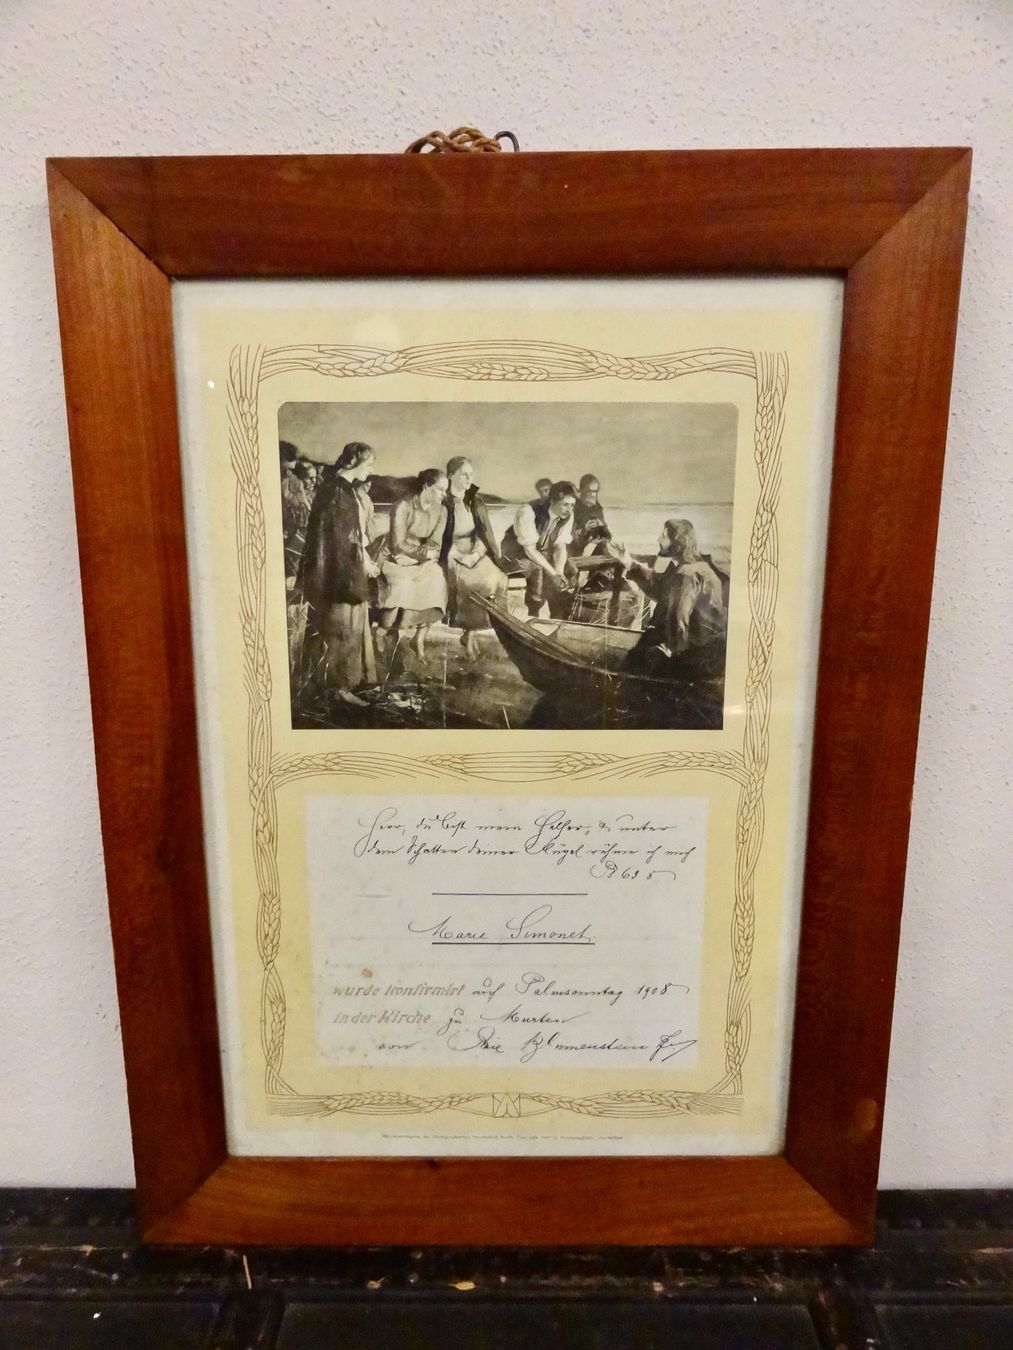 Herr, du bist mein Helfer, & unter
dem Schatten deiner Flügel rühme ich mich
Ps 63 8
Marie Simonet
wurde konfirmirt auf Palmsonntag 1908
in der Kirche zu Murten
von Blumenstein Pfr